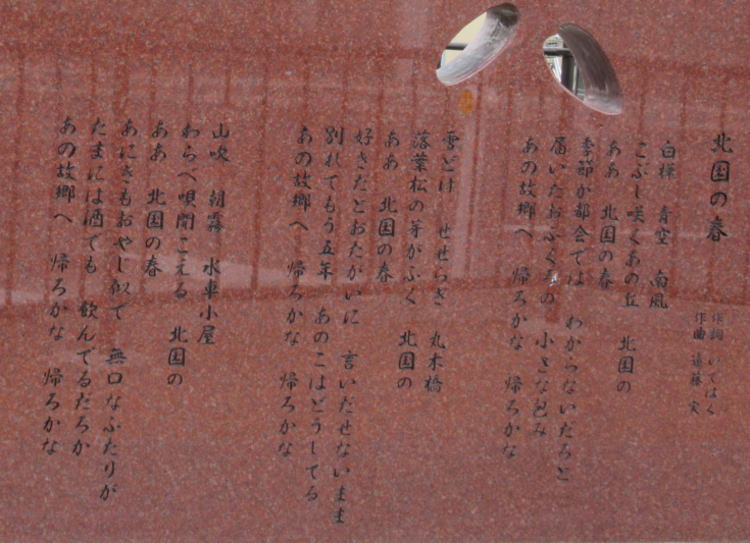 北国の春
作詞 いではく
作曲 遠藤 実
白樺 青空 南風
こぶし咲くあの丘 北国の
ああ 北国の春
季節が都会では わからないだろと
届いたおふくろの 小さな包み
あの故郷へ 帰ろかな 帰ろかな
雪どけ せせらぎ 丸木橋
落葉松の芽がふく 北国の
ああ 北国の春
好きだとおたがいに 言いだせないまま
別れてもう五年 あのこはどうしてる
あの故郷へ 帰ろかな 帰ろかな
山吹 朝霧 水車小屋
わらべ唄聞こえる 北国の
ああ 北国の春
あにきもおやじ似で 無口なふたりが
たまには酒でも 飲んでるだろか
あの故郷へ 帰ろかな 帰ろかな